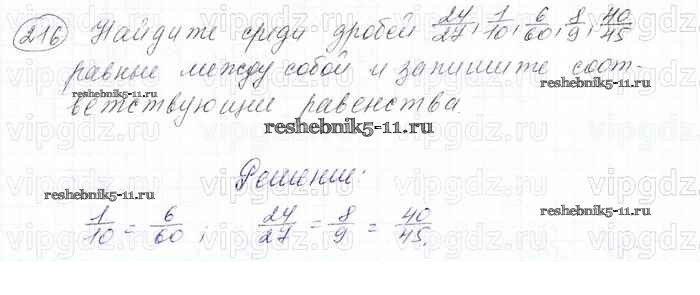 216 Найдите среди дробей 24/27, 1/10, 6/60, 8/9, 40/45
равные между собой и запишите соот-
ветствующие равенства.
reshebnik5-11.ru
reshebnik5-11.ru
Решение:
reshebnik5-11.ru
reshebnik5-11.ru
1/10 = 6/60; 24/27 = 8/9 = 40/45.